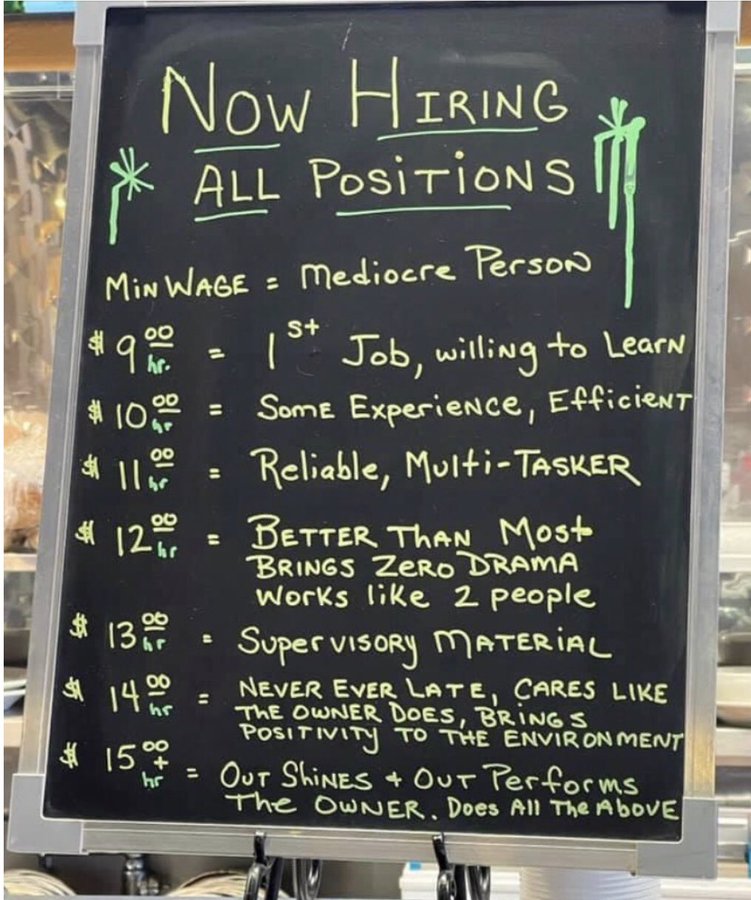 Now Hiring
All Positions
Min Wage = Mediocre Person
$9.00 hr. = 1st Job, willing to Learn
$10.00 hr = Some Experience, Efficient
$11.00 hr = Reliable, Multi-Tasker
$12.00 hr = Better Than Most
Brings Zero Drama
Works like 2 people
$13.00 hr = Supervisory Material
$14.00 hr = Never Ever Late, Cares Like
The Owner Does, Brings
Positivity To The Environment
$15.00+ hr = Out Shines + Out Performs
The Owner. Does All The Above